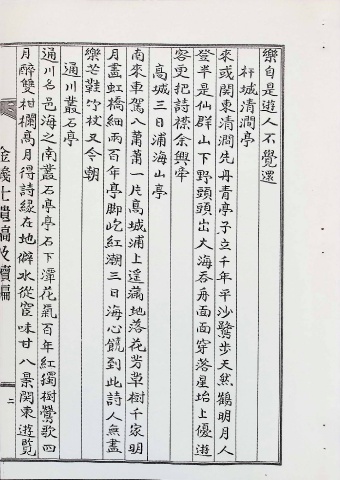 樂自是遊人不覺還
杆城清澗亭
來或關東清澗先丹青亭子立千年平沙驚步天然鶴明月人
登半是仙群山下野頭頭出大海吞舟面面穿落星坮上優遊
客更把詩襟余興牽
高城三日浦海山亭
南來車駕八蕭蕭一片高城浦上遙藏地落花芳草樹千家明
月畵虹橋細雨百年亭脚屹紅潮三日海心饒到此詩人無盡
樂芒鞋竹杖又今朝
通川叢石亭
通川名邑海之南叢石亭亭石下潭花氣百年紅獨樹鶯歌四
月醉雙柑欄高月得詩緣在地僻水從宦味甘八景關東遊覽
金義士遺稿及續編
二